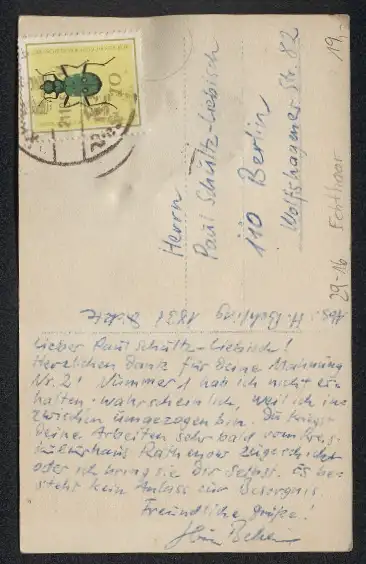 Herrn
Paul Schultz-Liebisch
110 Berlin
Wolfshagener Str. 82
Abs. H. Behling 1831
Lieber Paul Schultz-Liebisch!
Herzlichen Dank für Deine Mahnung
Nr. 2! Nummer 1 hab ich nicht er-
halten. Wahrscheinlich, weil ich in-
zwischen umgezogen bin. Du kriegst
Deine Arbeiten sehr bald vom Kreis-
kulturhaus Rathenow zugeschickt
oder ich bring sie Dir selbst. Es be-
steht kein Anlass zur Besorgnis.
Freundliche Grüße!
19,
29-16 Echthaar
20